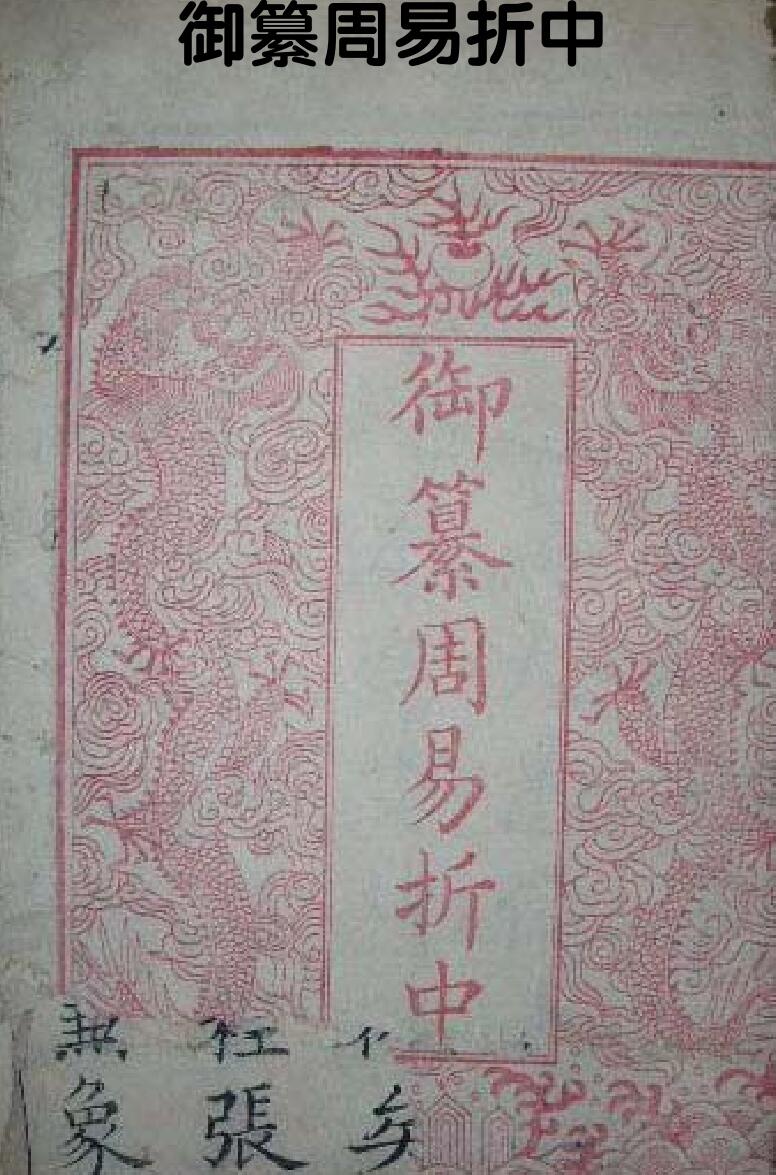 御纂周易折中
御纂周易折中
張
象